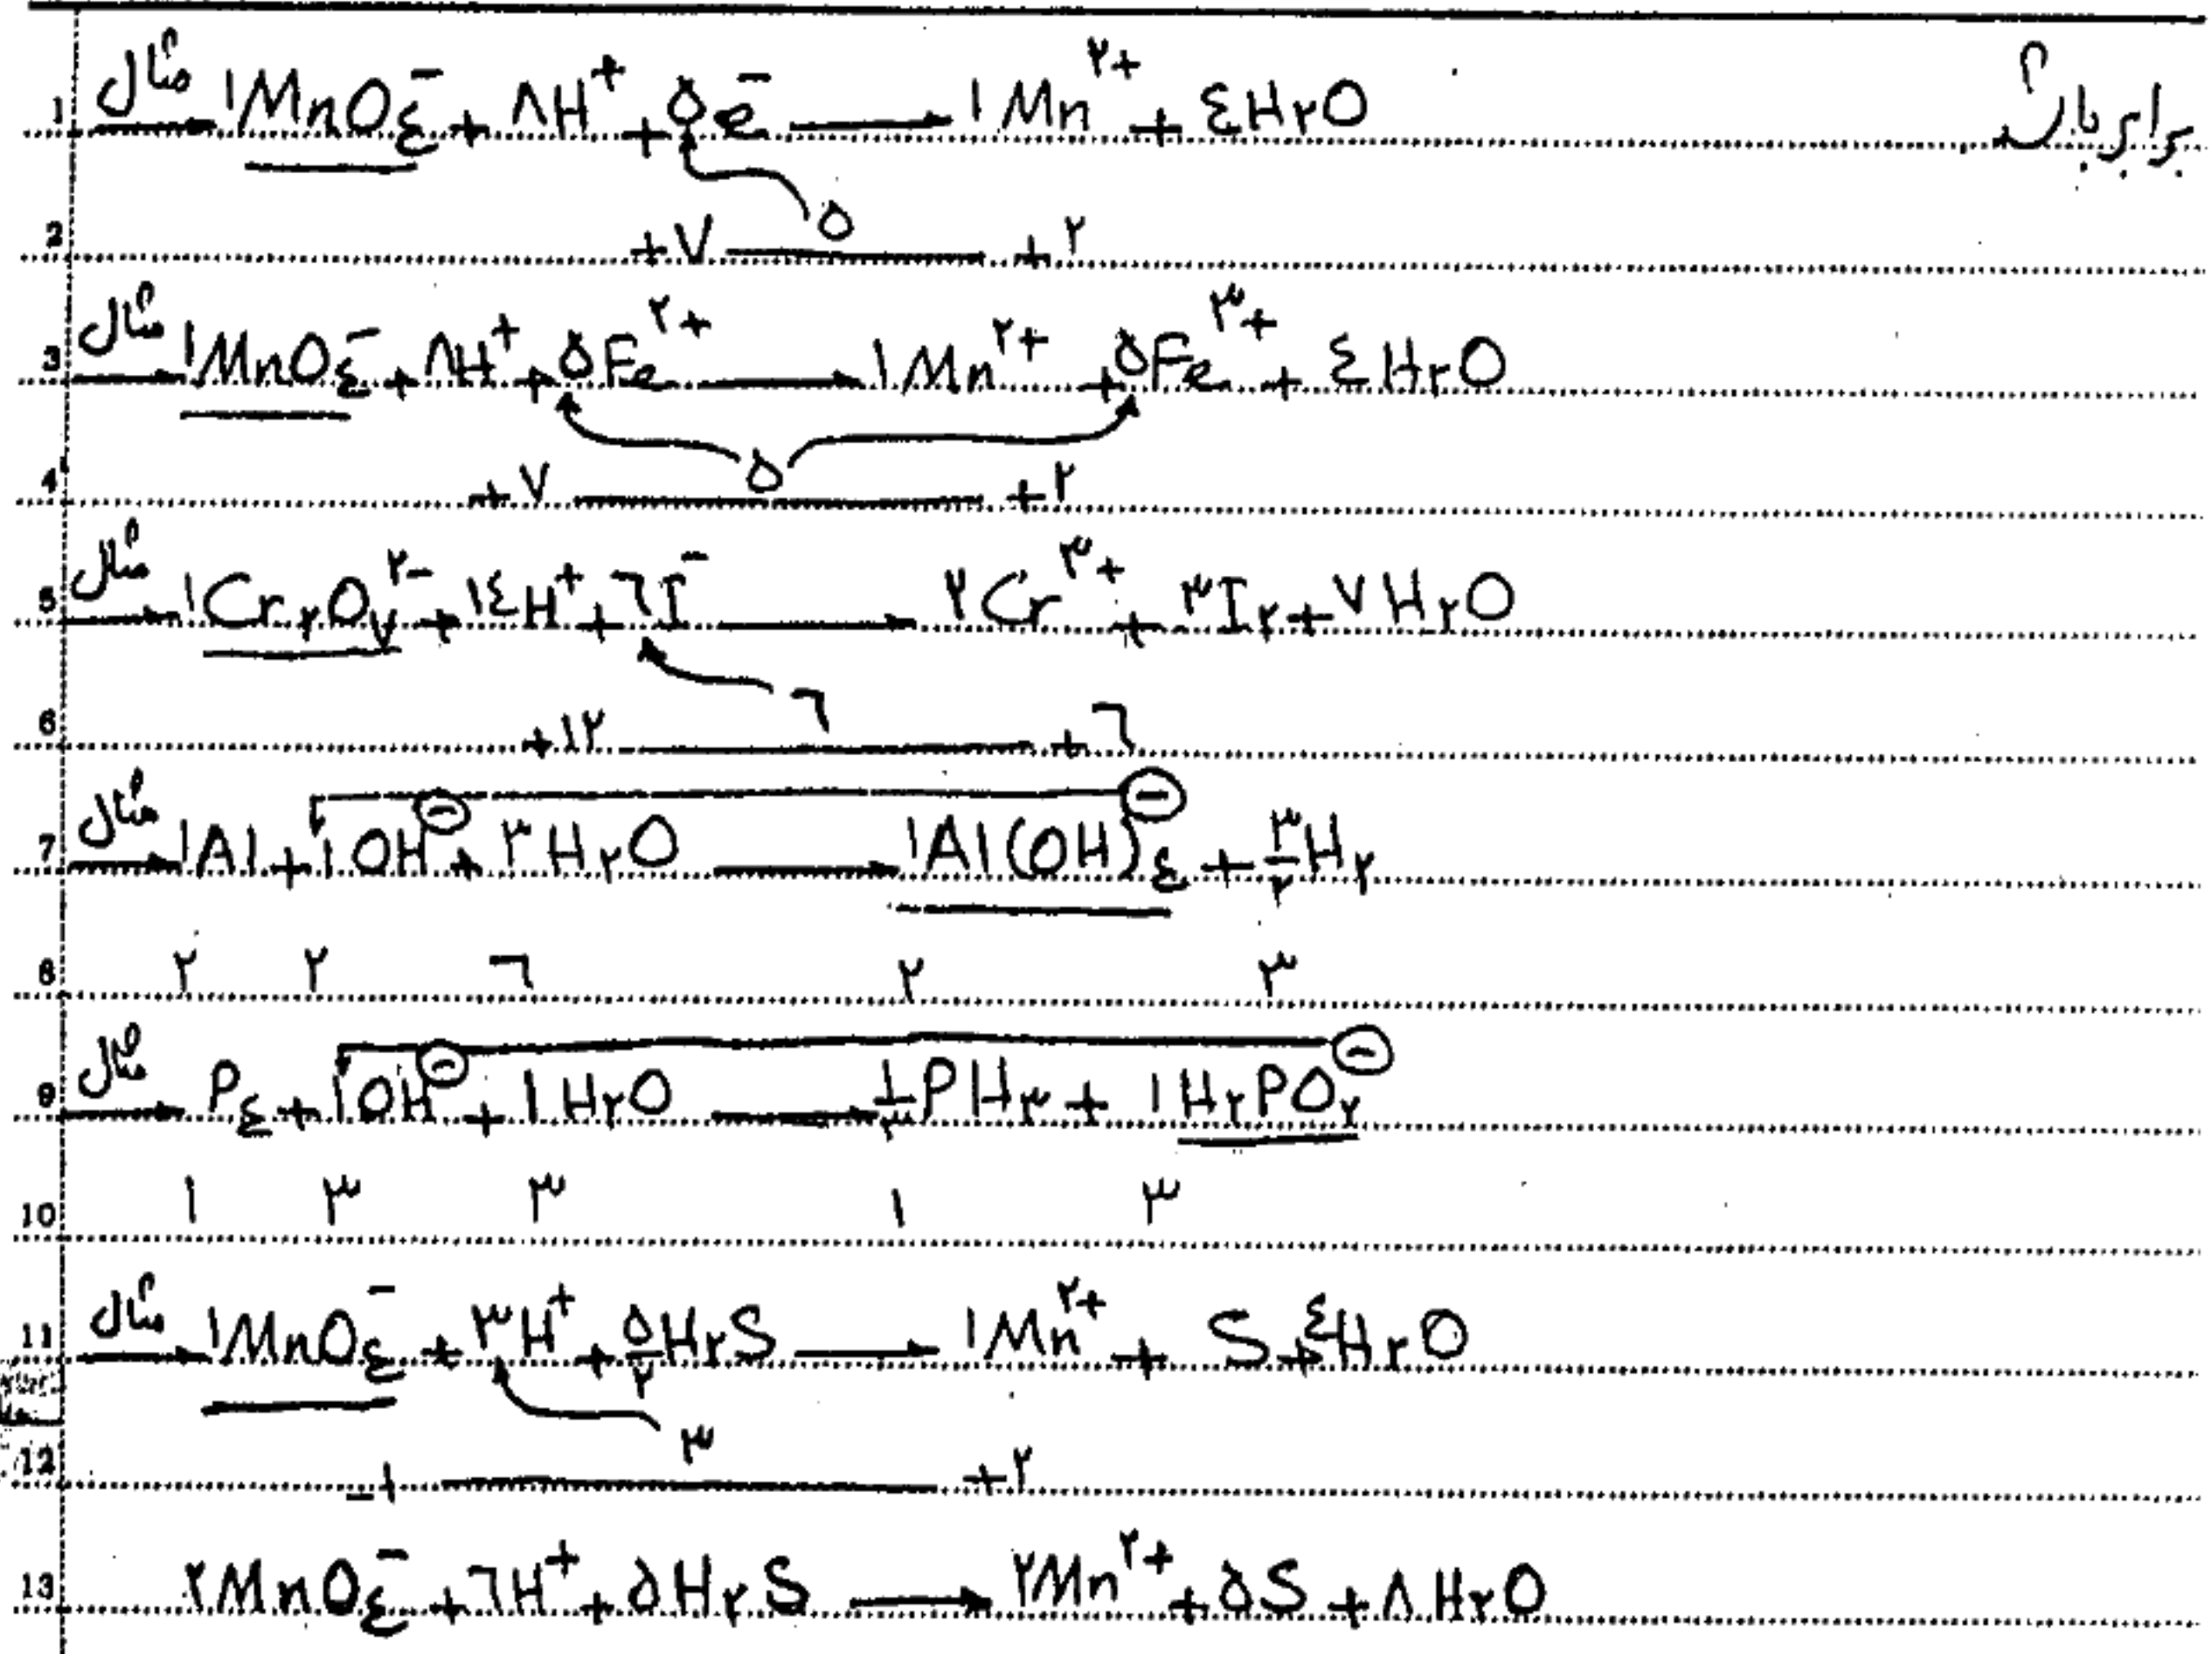 1 مثال → ۱MnO٤⁻ + ۸H⁺ + ۵e⁻ → ۱Mn²⁺ + ٤H۲O
۵
2 +۷ — +۲
3 مثال → ۱MnO٤⁻ + ۸H⁺ + ۵Fe²⁺ → ۱Mn²⁺ + ۵Fe³⁺ + ٤H۲O
۵
4 +۷ — +۲
5 مثال → ۱Cr۲O۷²⁻ + ۱٤H⁺ + ٦I⁻ → ۲Cr³⁺ + ۳I۲ + ۷H۲O
٦
6 +۱۲ — +٦
7 مثال → ۱Al + ۱OH⁻ + ۳H۲O → ۱Al(OH)٤⁻ + ۳/۲H۲
8 ۲ ۲ ٦ ۲ ۳
9 مثال → P٤ + ۱OH⁻ + ۱H۲O → ۱/۳PH۳ + ۱H۲PO۲⁻
10 ۱ ۳ ۳ ۱ ۳
11 مثال → ۱MnO٤⁻ + ۳H⁺ + ۵/۲H۲S → ۱Mn²⁺ + S + ٤H۲O
۳
12 -۱ — +۲
13 ۲MnO٤⁻ + ٦H⁺ + ۵H۲S → ۲Mn²⁺ + ۵S + ۸H۲O